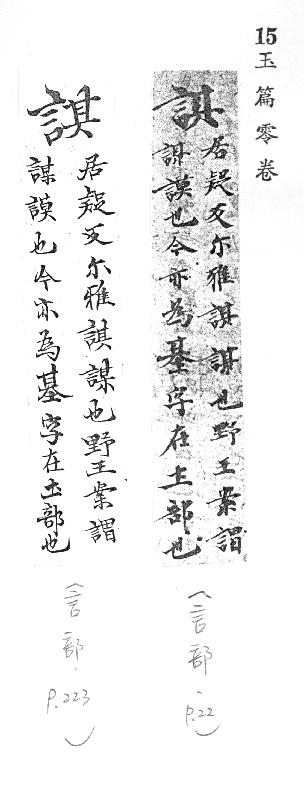 15玉篇零卷
諆
居疑反尔雅諆謀也野王案謂
謀謨也今亦為基字在土部也
(言部. p.22)
諆
居疑反尔雅諆謀也野王案謂
謀謨也今亦為基字在土部也
(言部. p.223)